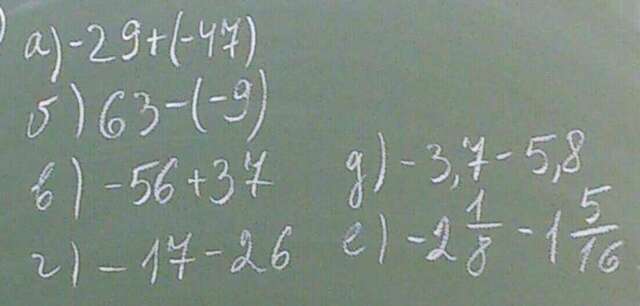 а) -29+(-47)
б) 63-(-9)
в) -56+37
г) -17-26
д) -3,7-5,8
е) -2 1/8 - 1 5/16